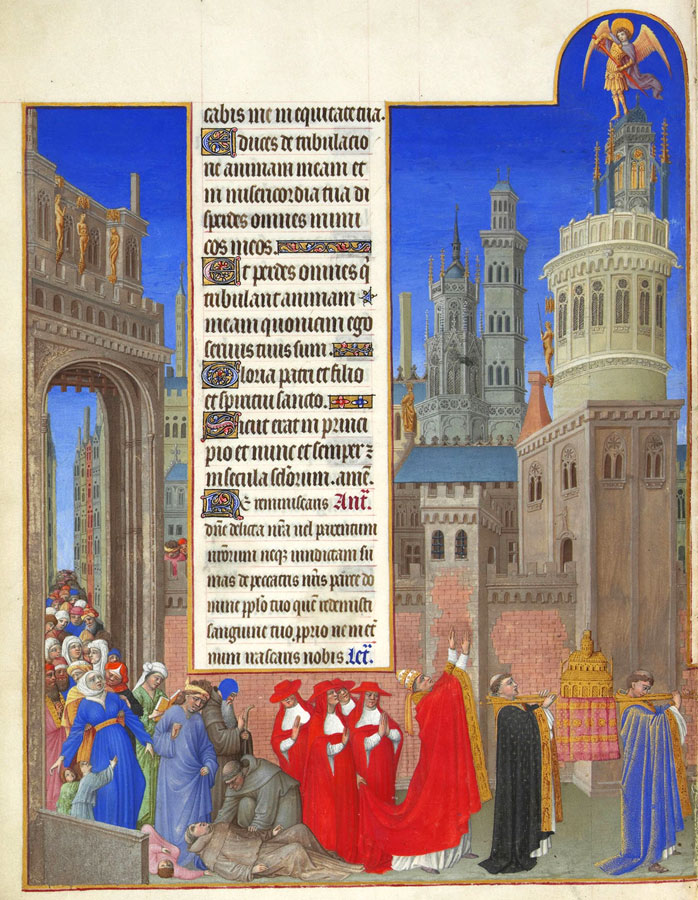 cabis me in equitate tua.
Educes de tribulacio
ne animam meam et
in misericordia tua di
sperdes omnes inimi
cos meos.
Et perdes omnes q̄
tribulant animam
meam quoniam ego
seruus tuus sum.
Gloria patri et filio
et spiritui sancto.
Sicut erat in princi
pio et nunc et semper ⁊
in secula sclōrum. amē.
Ne reminiscaris Añt.
dñe delicta nrā uel parentum
nrōrum neq; uindictam su
mas de peccatis nrīs parce do
mine pplō tuo quem redemisti
sanguine tuo proprio ne in et̄
num irascaris nobis. Let̄.